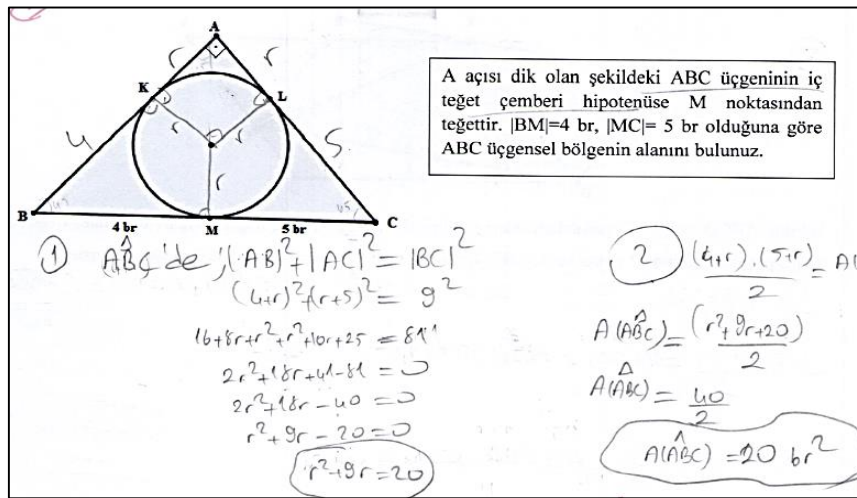 A
r
r
K
L
r
r
4
5
r
B
M
C
4 br
5 br
A açısı dik olan şekildeki ABC üçgeninin iç
teğet çemberi hipotenüse M noktasından
teğettir. |BM|=4 br, |MC|= 5 br olduğuna göre
ABC üçgensel bölgenin alanını bulunuz.
① ABC'de; |AB|² + |AC|² = |BC|²
(4+r)²+(r+5)² = 9²
16+8r+r²+r²+10r+25 = 81
2r²+18r+41-81 = 0
2r²+18r-40=0
r²+9r-20=0
r²+9r=20
2 (4+r).(5+r)/2 = A(
A(ABC) = (r²+9r+20)/2
A(ABC) = 40/2
A(ABC) = 20 br²